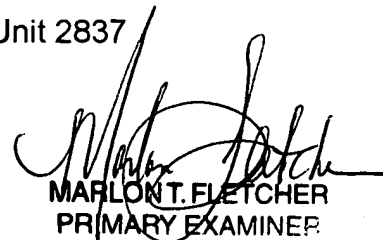 Unit 2837
Marlon Fletcher
MARLON T. FLETCHER
PRIMARY EXAMINER